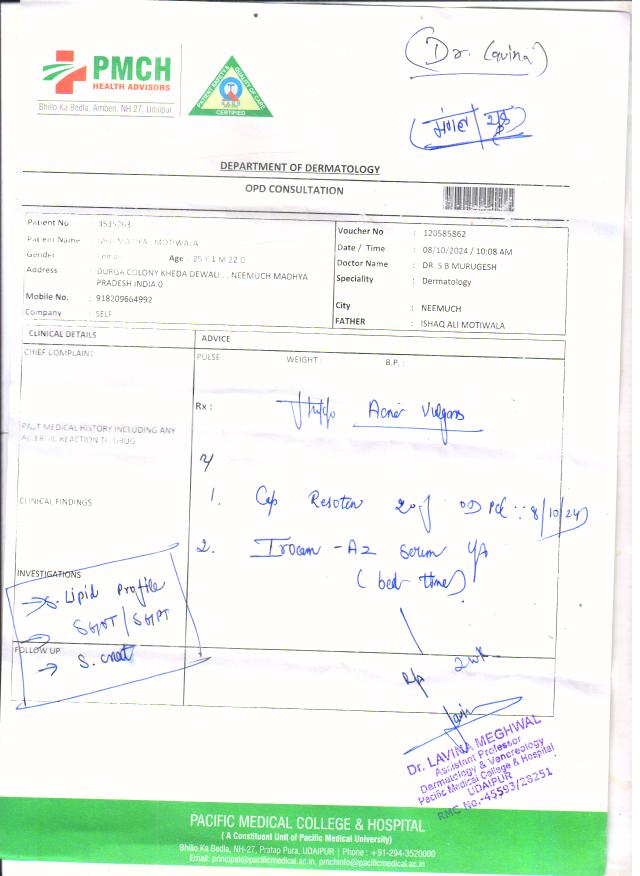 (Dr. Lavina)
PMCH
HEALTH ADVISORS
Bhillo Ka Bedla, Amberi, NH 27, Udaipur
CERTIFIED
DEPARTMENT OF DERMATOLOGY
OPD CONSULTATION
Patient No.
Patient Name MOTIWALA
Gender Age : 25 Y 1 M 22 D
Address : DURGA COLONY KHEDA DEWALI . . NEEMUCH MADHYA
PRADESH INDIA 0
Mobile No. : 918209664992
Company : SELF
Voucher No : 120585862
Date / Time : 08/10/2024 / 10:08 AM
Doctor Name : DR. S B MURUGESH
Speciality : Dermatology
City : NEEMUCH
FATHER : ISHAQ ALI MOTIWALA
CLINICAL DETAILS
ADVICE
CHIEF COMPLAINT
PULSE : WEIGHT : B.P. :
Rx :
Acne Vulgaris
PAST MEDICAL HISTORY INCLUDING ANY
ALLERGIC REACTION TO DRUG
1. Cap OD 8/10/24
CLINICAL FINDINGS
2. -AZ serum
(bed time)
INVESTIGATIONS
→ S. Lipid Profile
SGOT/SGPT
FOLLOW UP
→ S. creat
2 wk
Dr. LAVINA MEGHWAL
Assistant Professor
Dermatology & Venereology
Pacific Medical College & Hospital
UDAIPUR
RMC No.-45593/28251
PACIFIC MEDICAL COLLEGE & HOSPITAL
( A Constituent Unit of Pacific Medical University)
Bhillo Ka Bedla, NH-27, Pratap Pura, UDAIPUR | Phone : +91-294-3520000
Email: principal@pacificmedical.ac.in, pmchinfo@pacificmedical.ac.in